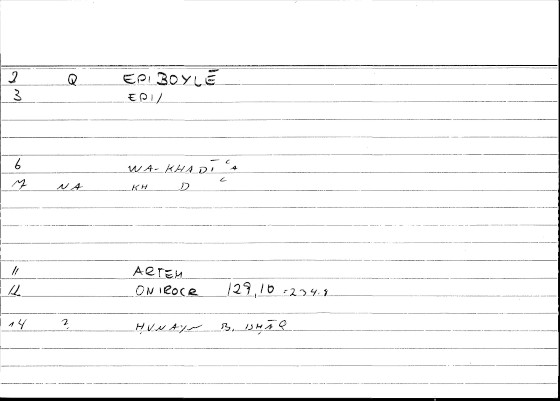 2 Q EPIBOYLĒ
3 EPI/
6 WA-KHADĪʿA
7 NA KH D ʿ
11 ARTEM
12 ONIROCR 129,10 = 234.8
14 ? ḤUNAYN B. ISḤĀQ